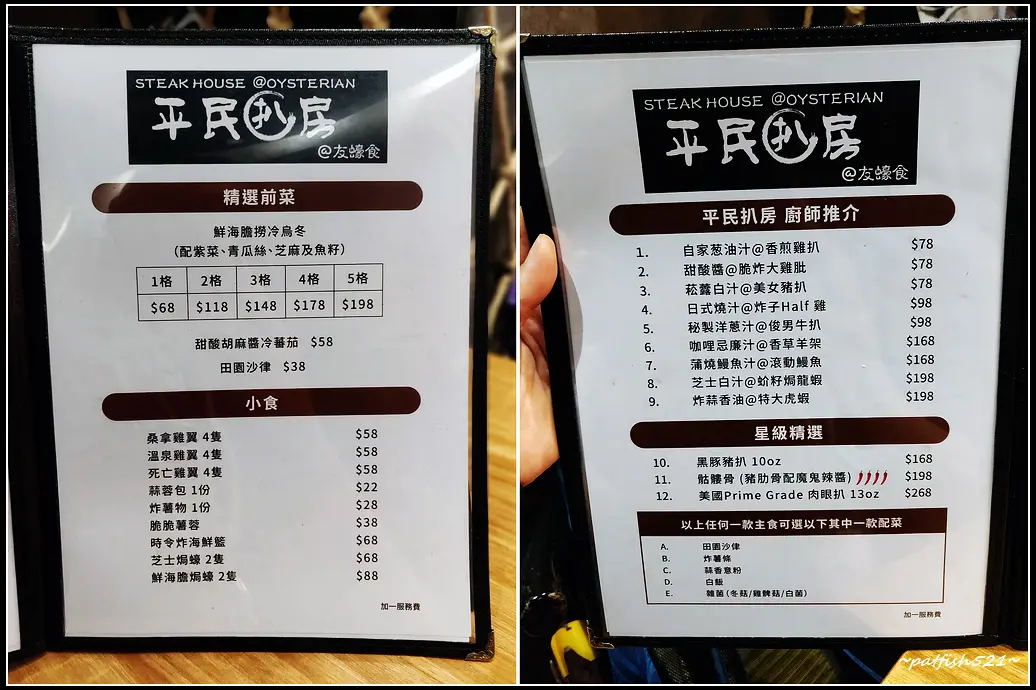 STEAK HOUSE @OYSTERIAN
平民扒房
@友蠔食
精選前菜
鮮海膽撈冷烏冬
(配紫菜、青瓜絲、芝麻及魚籽)
1格 2格 3格 4格 5格
$68 $118 $148 $178 $198
甜酸胡麻醬冷蕃茄 $58
田園沙律 $38
小食
桑拿雞翼 4隻 $58
溫泉雞翼 4隻 $58
死亡雞翼 4隻 $58
蒜蓉包 1份 $22
炸薯物 1份 $28
脆脆薯蓉 $38
時令炸海鮮籃 $68
芝士焗蠔 2隻 $68
鮮海膽焗蠔 2隻 $88
加一服務費
STEAK HOUSE @OYSTERIAN
平民扒房
@友蠔食
平民扒房 廚師推介
1. 自家葱油汁@香煎雞扒 $78
2. 甜酸醬@脆炸大雞肶 $78
3. 菘露白汁@美女豬扒 $78
4. 日式燒汁@炸子Half 雞 $98
5. 秘製洋蔥汁@俊男牛扒 $98
6. 咖哩忌廉汁@香草羊架 $168
7. 蒲燒鰻魚汁@滾動鰻魚 $168
8. 芝士白汁@蚧籽焗龍蝦 $198
9. 炸蒜香油@特大虎蝦 $198
星級精選
10. 黑豚豬扒 10oz $168
11. 骷髏骨 (豬肋骨配魔鬼辣醬) $198
12. 美國Prime Grade 肉眼扒 13oz $268
以上任何一款主食可選以下其中一款配菜
A. 田園沙律
B. 炸薯條
C. 蒜香意粉
D. 白飯
E. 雜菌(冬菇/雞髀菇/白菌)
加一服務費
~patfish521~